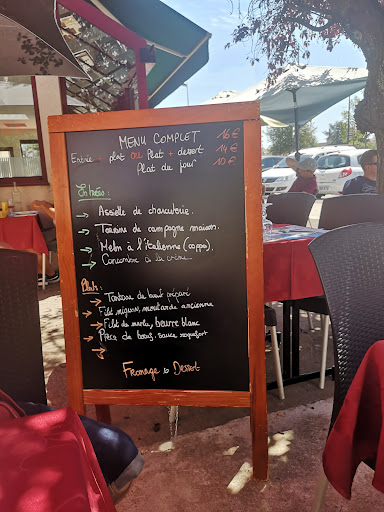 MENU COMPLET 16€
Entrée + plat ou Plat + dessert 14€
Plat du jour 10€
Entrées:
Assiette de charcuterie.
Terrine de campagne maison.
Melon à l'italienne (coppa).
Concombre à la crème.
Plats:
Tartare de bœuf préparé
Filet mignon, moutarde ancienne
Filet de merlu, beurre blanc
Pièce de bœuf, sauce roquefort
Fromage ou Dessert